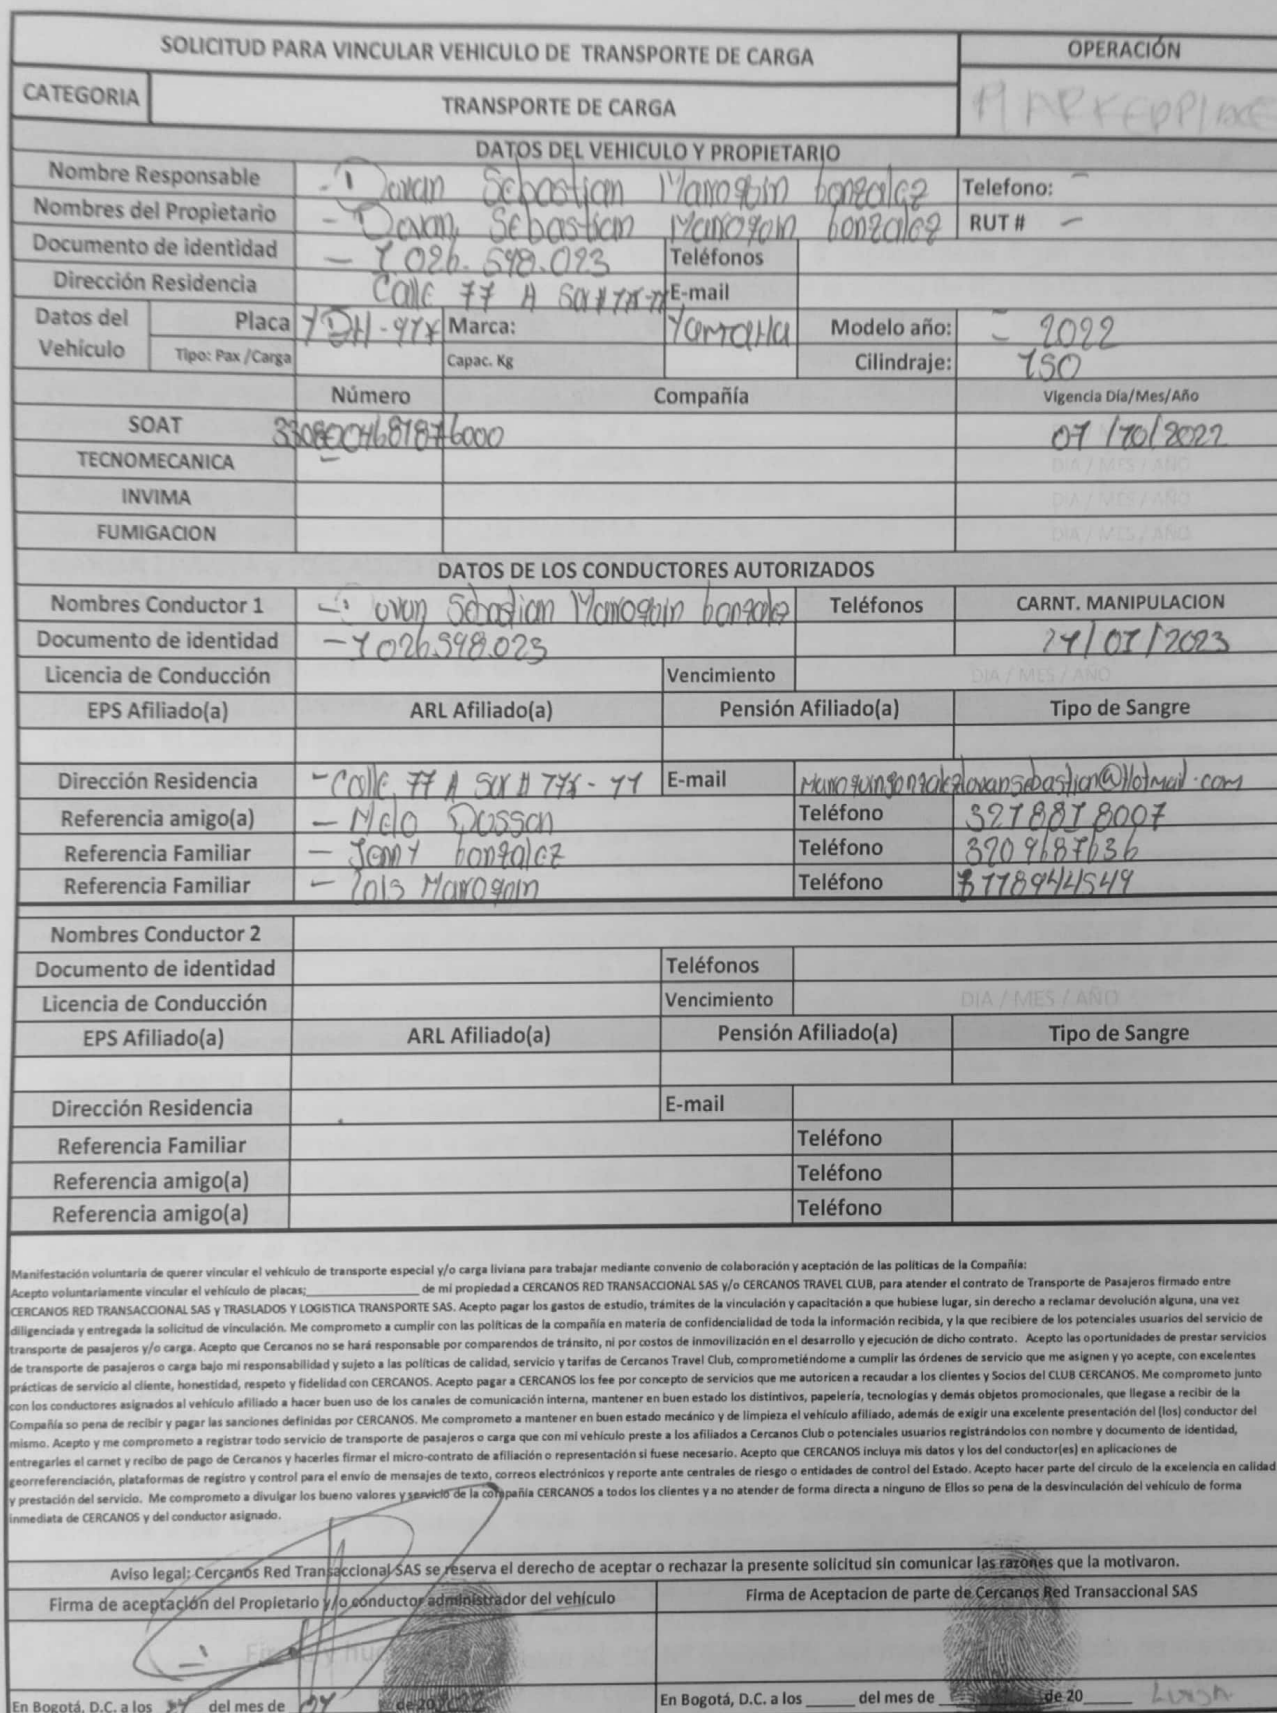 SOLICITUD PARA VINCULAR VEHICULO DE TRANSPORTE DE CARGA
OPERACIÓN
CATEGORIA
TRANSPORTE DE CARGA
DATOS DEL VEHICULO Y PROPIETARIO
Nombre Responsable - Sebastian Telefono: -
Nombres del Propietario - Sebastian RUT # -
Documento de identidad - 1.026.598.023 Teléfonos
Dirección Residencia Calle 77 A E-mail
Datos del Vehículo Placa Marca: Yamaha Modelo año: - 2022
Tipo: Pax /Carga Capac. Kg Cilindraje: 150
Número Compañía Vigencia Día/Mes/Año
SOAT 07/10/2022
TECNOMECANICA - DIA / MES / AÑO
INVIMA DIA / MES / AÑO
FUMIGACION DIA / MES / AÑO
DATOS DE LOS CONDUCTORES AUTORIZADOS
Nombres Conductor 1 Sebastian Teléfonos CARNT. MANIPULACION
Documento de identidad - 1026.598.023 /2023
Licencia de Conducción Vencimiento DIA / MES / AÑO
EPS Afiliado(a) ARL Afiliado(a) Pensión Afiliado(a) Tipo de Sangre
Dirección Residencia - Calle 77 A E-mail
Referencia amigo(a) - Teléfono
Referencia Familiar - Jenny Teléfono 3209687636
Referencia Familiar - Teléfono
Nombres Conductor 2
Documento de identidad Teléfonos
Licencia de Conducción Vencimiento DIA / MES / AÑO
EPS Afiliado(a) ARL Afiliado(a) Pensión Afiliado(a) Tipo de Sangre
Dirección Residencia E-mail
Referencia Familiar Teléfono
Referencia amigo(a) Teléfono
Referencia amigo(a) Teléfono
Manifestación voluntaria de querer vincular el vehículo de transporte especial y/o carga liviana para trabajar mediante convenio de colaboración y aceptación de las políticas de la Compañía:
Acepto voluntariamente vincular el vehículo de placas;____________________ de mi propiedad a CERCANOS RED TRANSACCIONAL SAS y/o CERCANOS TRAVEL CLUB, para atender el contrato de Transporte de Pasajeros firmado entre
CERCANOS RED TRANSACCIONAL SAS y TRASLADOS Y LOGISTICA TRANSPORTE SAS. Acepto pagar los gastos de estudio, trámites de la vinculación y capacitación a que hubiese lugar, sin derecho a reclamar devolución alguna, una vez
diligenciada y entregada la solicitud de vinculación. Me comprometo a cumplir con las políticas de la compañía en materia de confidencialidad de toda la información recibida, y la que recibiere de los potenciales usuarios del servicio de
transporte de pasajeros y/o carga. Acepto que Cercanos no se hará responsable por comparendos de tránsito, ni por costos de inmovilización en el desarrollo y ejecución de dicho contrato. Acepto las oportunidades de prestar servicios
de transporte de pasajeros o carga bajo mi responsabilidad y sujeto a las políticas de calidad, servicio y tarifas de Cercanos Travel Club, comprometiéndome a cumplir las órdenes de servicio que me asignen y yo acepte, con excelentes
prácticas de servicio al cliente, honestidad, respeto y fidelidad con CERCANOS. Acepto pagar a CERCANOS los fee por concepto de servicios que me autoricen a recaudar a los clientes y Socios del CLUB CERCANOS. Me comprometo junto
con los conductores asignados al vehículo afiliado a hacer buen uso de los canales de comunicación interna, mantener en buen estado los distintivos, papelería, tecnologías y demás objetos promocionales, que llegase a recibir de la
Compañía so pena de recibir y pagar las sanciones definidas por CERCANOS. Me comprometo a mantener en buen estado mecánico y de limpieza el vehículo afiliado, además de exigir una excelente presentación del (los) conductor del
mismo. Acepto y me comprometo a registrar todo servicio de transporte de pasajeros o carga que con mi vehículo preste a los afiliados a Cercanos Club o potenciales usuarios registrándolos con nombre y documento de identidad,
entregarles el carnet y recibo de pago de Cercanos y hacerles firmar el micro-contrato de afiliación o representación si fuese necesario. Acepto que CERCANOS incluya mis datos y los del conductor(es) en aplicaciones de
georreferenciación, plataformas de registro y control para el envío de mensajes de texto, correos electrónicos y reporte ante centrales de riesgo o entidades de control del Estado. Acepto hacer parte del circulo de la excelencia en calidad
y prestación del servicio. Me comprometo a divulgar los bueno valores y servicio de la compañía CERCANOS a todos los clientes y a no atender de forma directa a ninguno de Ellos so pena de la desvinculación del vehículo de forma
inmediata de CERCANOS y del conductor asignado.
Aviso legal: Cercanos Red Transaccional SAS se reserva el derecho de aceptar o rechazar la presente solicitud sin comunicar las razones que la motivaron.
Firma de aceptación del Propietario y/o conductor administrador del vehículo Firma de Aceptacion de parte de Cercanos Red Transaccional SAS
En Bogotá, D.C. a los del mes de de 20 En Bogotá, D.C. a los _____ del mes de de 20_____ LUISA